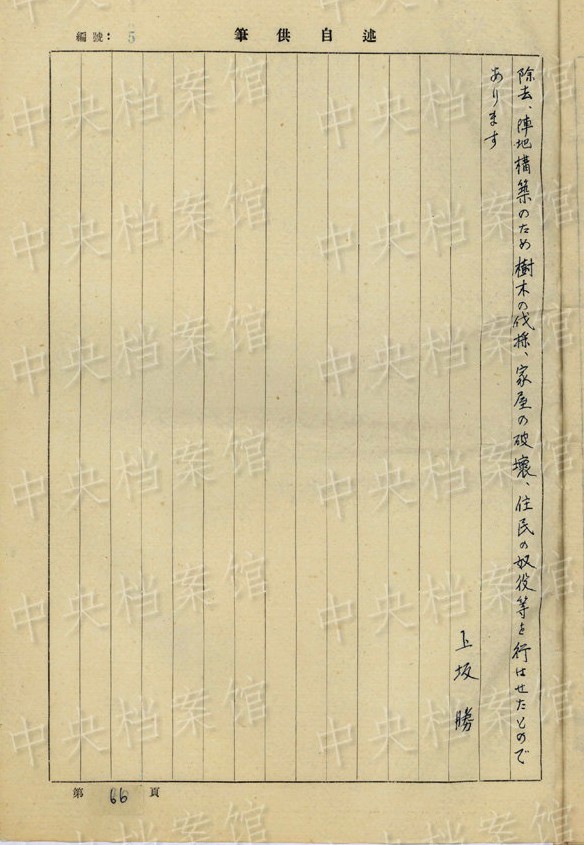 編號: 5
筆供自述
除去、陣地構築のため樹木の伐採、家屋の破壊、住民の奴役等を行はせたもので
あります
上坂勝
第 66 頁
中央档案馆